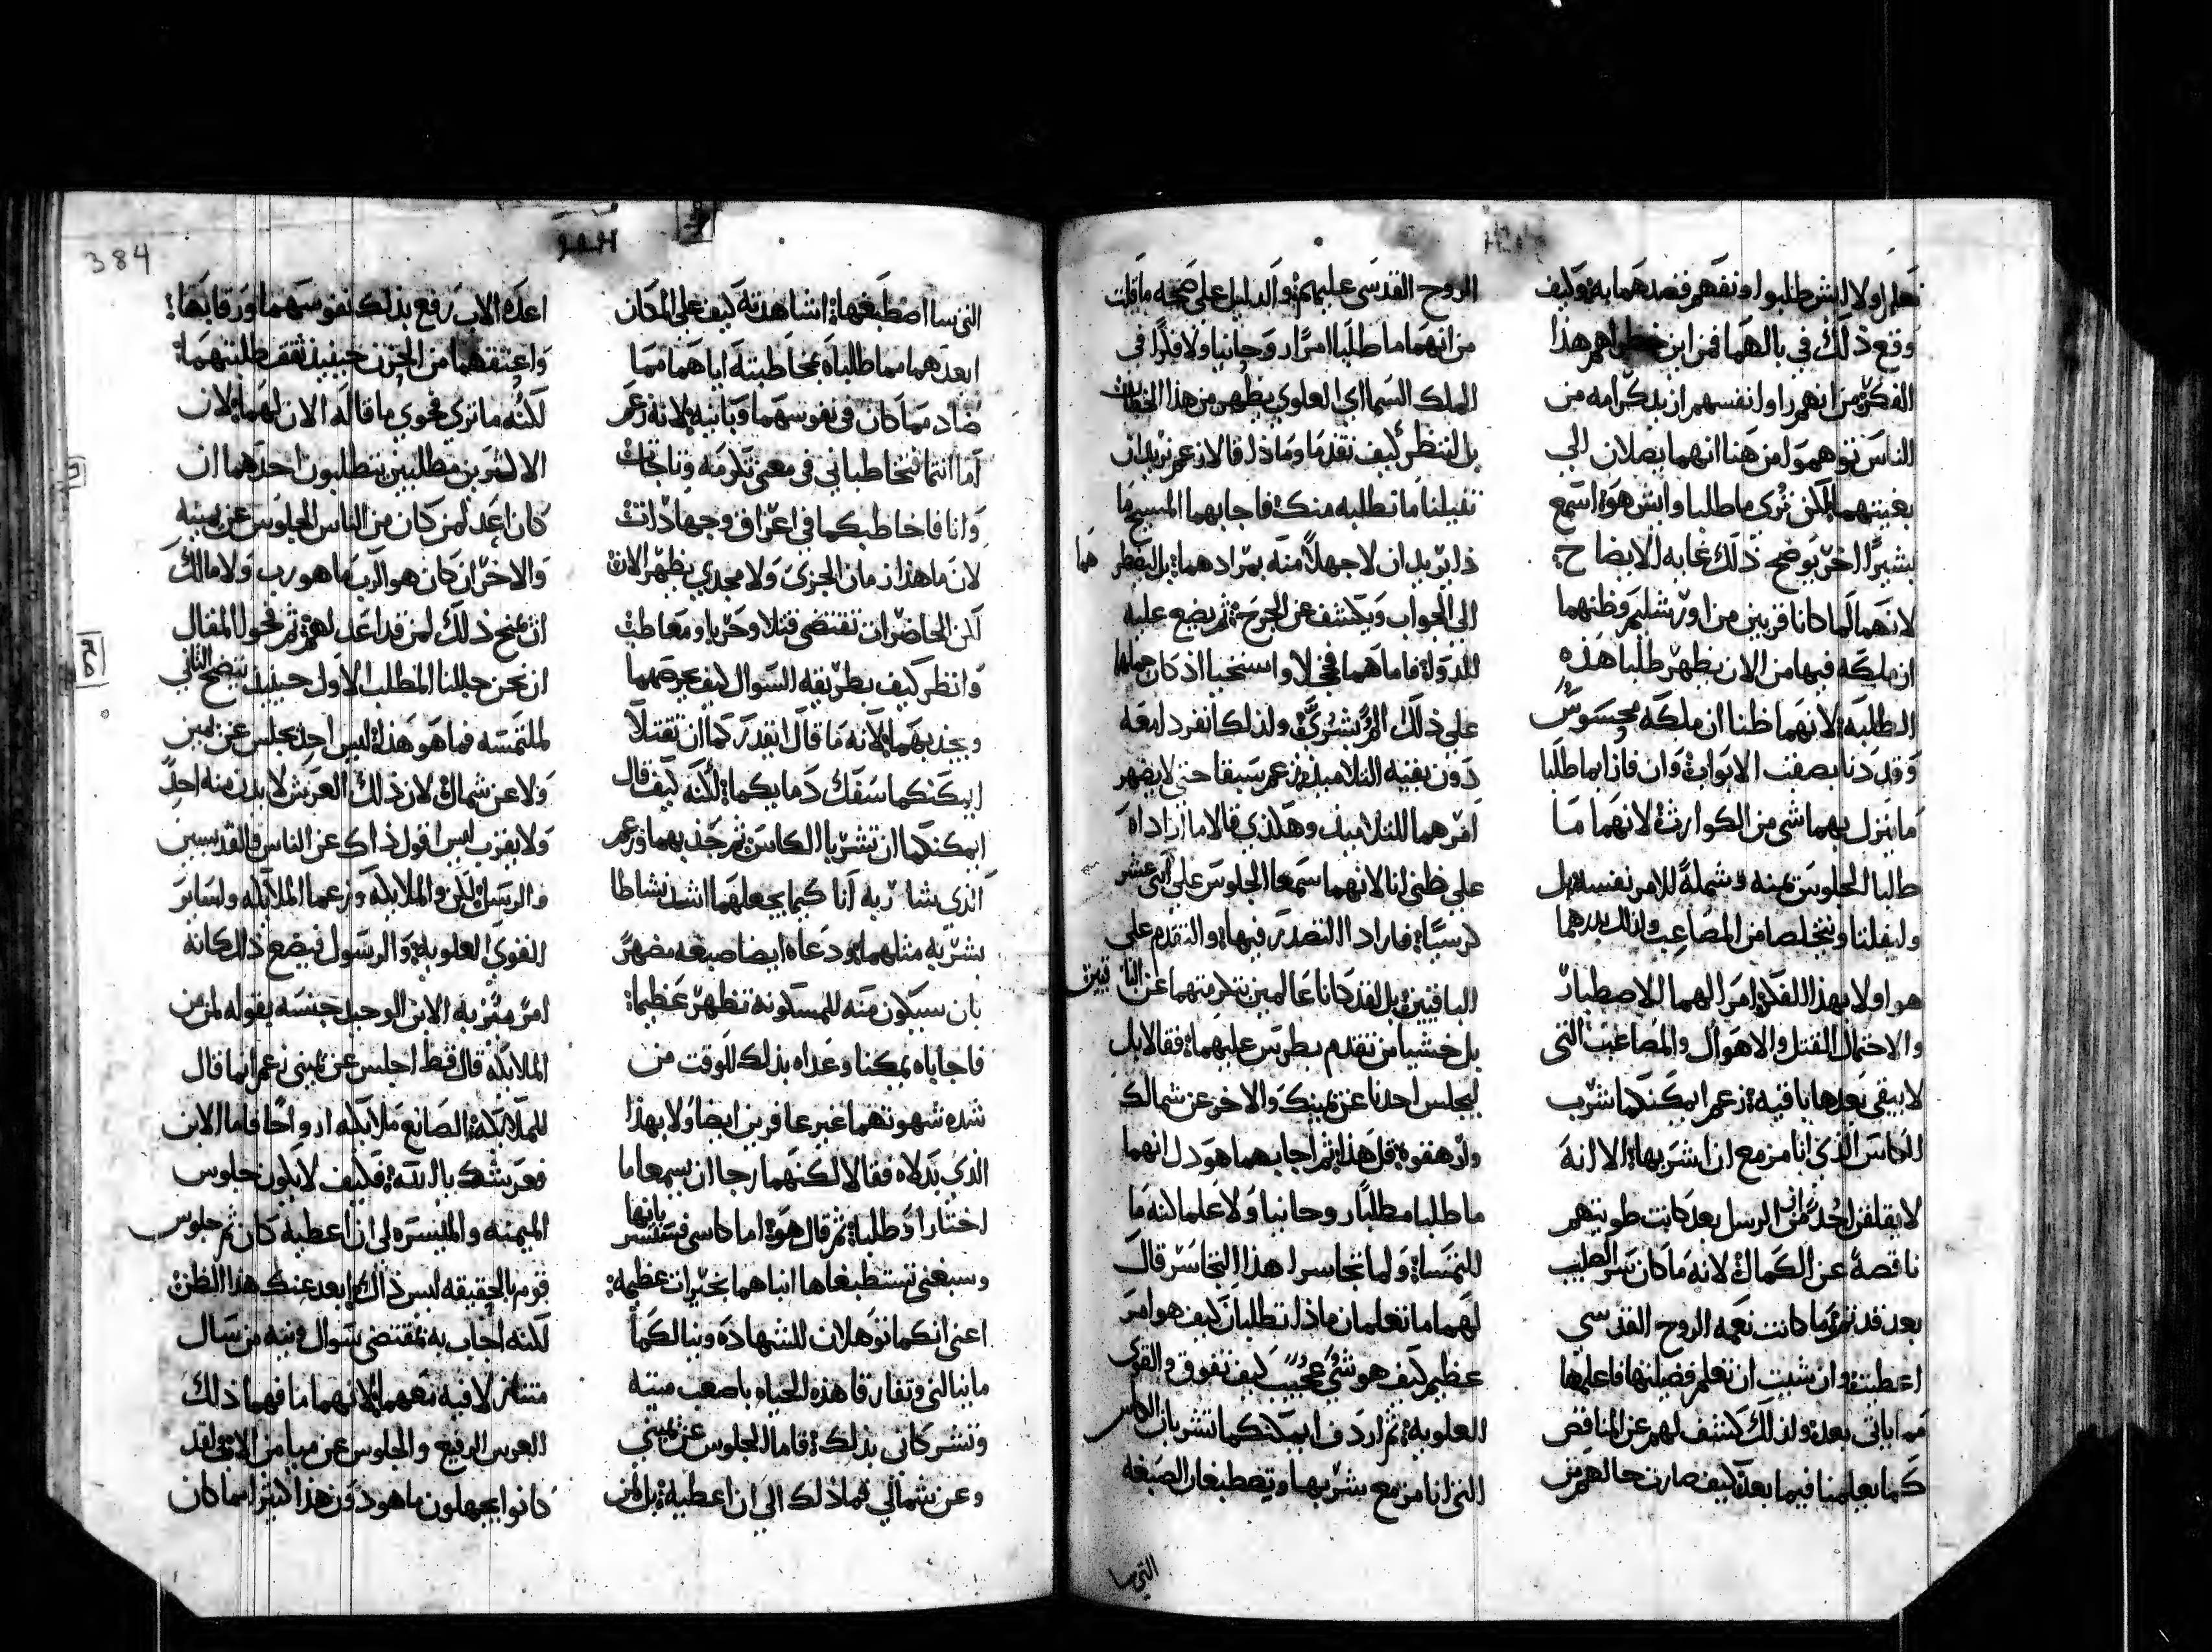 فعلم اولا ايش طلبوا ونفهم قصدهما به وكيف
وقع ذلك في بالهما فمن اين خطر لهم هذا
الفكر من انهم راوا نفسهم ازيد كرامه من
الناس توهموا من هنا انهما يصلان الي
بغيتهما لكن تري ما طلبا وايش هو اسمع
بشيرا اخر يوضح ذلك غايه الايضاح
لانهما لما كانا قريبين من اورشليم وظنهما
ان ملكه فيها من الان يظهر طلبا هذه
الطلبه لانهما ظنا ان ملكه محسوس
وقد دنا بصفت الابواب وان فازا بما طلبا
ما ينزل بهما شي من الكوارث لانهما ما
طلبا الجلوس يمنه وشملة للامر نفسه بل
وليفلتا ويتخلصا من المصاعب ولذلك يردهما
هو اولا بهذا الفكر امرا لهما للاصطبار
والاحتمال القتل والاهوال والمصاعب التي
لا يبقي بعدها باقيه زعم ايمكنكما شرب
الكاس الذي انا مزمع ان اشربها الا انه
لا يقلقن احد من الرسل بعد كانت طويتهم
ناقصة عن الكمال لانه ما كان بتر الصليب
بعد قد تم وما كانت نعمه الروح القدسي
اعطيت وان شيت ان تعلم فضيلتها فاعلمها
مما ياتي بعده ولذلك كشف لهم عن المناقص
كما يعلمنا فيما بعد كيف صارت حالهم من
الروح القدسي عليهم والدليل علي صحه ما قلت
من انهما ما طلبا امرا روحانيا ولا فكرا في
الملك السمااي العلوي يظهر من هذا
بل لننظر كيف تقدما وماذا قالا زعم نريد ان
تفيلنا ما نطلبه منك فاجابهما المسيح ما
ذا تريدان لا جهلا منه بمرادهما بل ليضطرهما
الي الجواب ويكشف عن الجرح ثم يضع عليه
الدوا فاما هما فخجلا واستحيا اذ كان حملهما
علي ذلك الم بشري ولذلك انفردا معه
دون بقيه التلاميذ زعم سبقا حتي لا يظهر
امرهما للتلاميذ وهكذي قالا ما اراداه
علي ظني انا لانهما سمعا الجلوس علي اثني عشر
كرسيا فارادا التصدر فيها والتقدم علي
الباقيين بل لقد كانا عالمين بتكرمتهما عن الباقيين
بل خشيا من تقدم بطرس عليهما فقالا بل
ليجلس احدنا عن يمينك والاخر عن شمالك
وارهقوه قل هذا ثم اجابهما هو دل انهما
ما طلبا مطلبا روحانيا ولا علما كنه ما
التمسا ولما تجاسرا هذا التجاسر قال
لهما ما تعلمان ماذا تطلبان كيف هو امر
عظيم كيف هو شي عجيب كيف تفوق والقوي
العلويه ثم اردف ايمكنكما تشربان الكاس
التي انا مزمع بشربها وتصطبغان الصبغه
التي سا
384
التي سااصطبغها اشاهدته كيف علي المكان
ابعدهما مما طلباه بمخاطبته اياهما مما
ضاد مما كان في نفوسهما وباينه لانه زعم
اما انتما فتخاطباني في معني تكرمه وتاجات
وانا فاخاطبكما في اعراق وجهادات
لان ما هذا زمان الجزي ولا مجدي يظهر الان
لكن الحاضرات تقتضي قتلا وحربا ومعاطب
وانظر كيف بطريقه السوال كيف عرضهما
ويجذبهما لانه ما قال ايقدر كما ان تقتلا
ايمكنكما سفك دمايكما لكنه كيف قال
ايمكنكما ان تشربا الكاس ثم جذبهما وزعم
الذي سا ربه انا كيما يجعلهما اشد نشاطا
بشربه مثلهما ودعاه ايضا صبغه مضهر
بان سيكون منه للمسكونه تظهر عظيما
فاجاباه يمكنا وعداه بذلك للوقت من
شده شهوتهما غير عارفين ايضا ولا بهذا
الذي بدلاه فقالا لكنهما رجا ان يسمعا ما
اختارا وطلبا ثم قال هو اما كاسي فستشربانها
وصبغتي تستطبغاها انباهما بخيرات عظيمه
اعني انكما توهلان للشهاده وينالكما
ما ينالني وتفارقا هذه الحياه باصعب ميته
وتشركاني بذلك فاما الجلوس عن يميني
وعن شمالي فما ذلك الي ان اعطيه بل لمن
اعده الاب رفع بذلك نفوسهما ورقابها
واعتقهما من الحزن حينيذ ثقف طلبتهما
لكنه ما تري فحوي ما قاله الان لهما لان
الاكثرين مطلبين يتطلبون احدهما ان
كان اعد لمن كان من الناس الجلوس عن يمينه
والاخر ان كان هو الرب ما هو رب ولا مالك
ان يمنح ذلك لمن قد اعد لهم ثم فحوا المقال
ان نحن حللنا المطلب الاول حينيذ يتضح الثاني
لملتمسه فما هو هذا ليس احد يجلس عن يمين
ولا عن شمال لان ذلك العرش لا يدن منه احد
ولا يقرب ليس اقول ذاك عن الناس والقديسين
والرسل لكن والملايكه وزعما الملايكه ولساير
القوي العلويه والرسول فيضع ذلك كانه
امر مفرز به الابن الوحيد جنسه بقوله لمن من
الملايكه قال قط اجلس عن يميني زعم انما قال
للملايكه الصانع ملايكه ارواحا فاما الابن
فعرشك يا الله فكيف لا يكون جلوس
الميمنه والميسره لي ان اعطيه كان ثم جلوس
قوم بالحقيقه ليس ذاك ابعد عنك هذا الظن
لكنه اجاب به بمقتضي سوال ونيه من سال
متنازلا فيه معهما لانهما ما فهما ذلك
العرس الرفيع والجلوس عن ميامن الاب ولقد
كانوا يجهلون ما هو دون هذا كثيرا مما كان